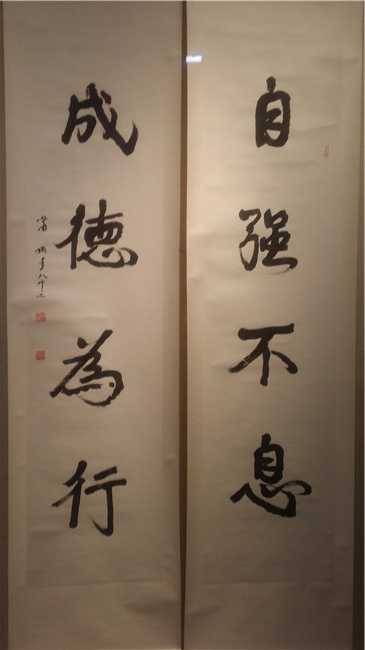 自强不息
成德為行